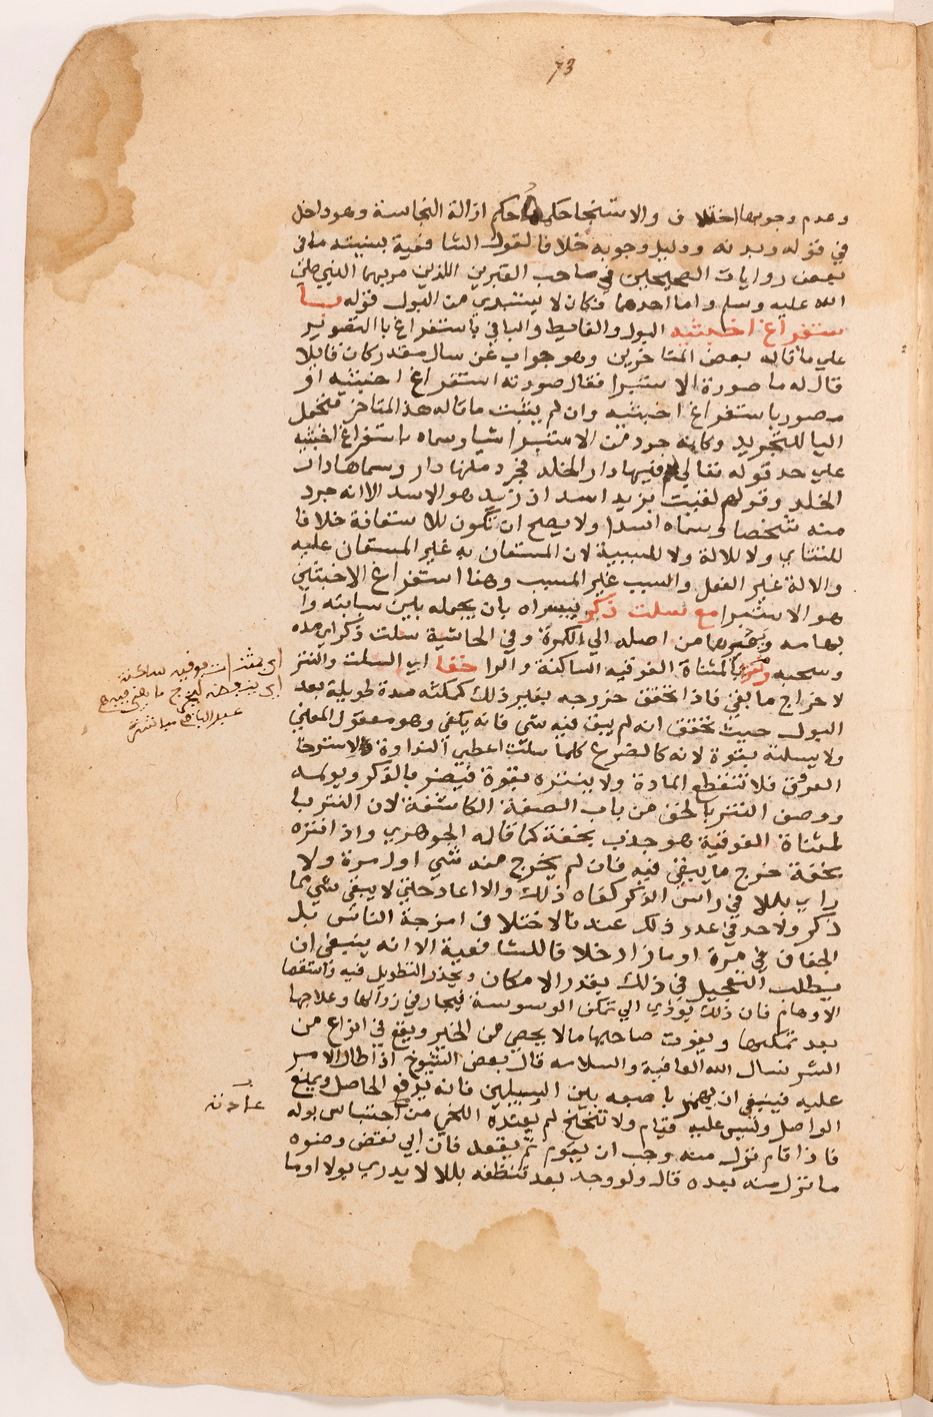 73
وعدم وجوبها اختلاف والاستنجا حكمه حكم ازالة النجاسة وهو داخل
في قوله وبدنه ودليل وجوبه خلافا لقول الشافعية بسنيته ما في
بعض روايات الصحيحين في صاحب القبرين اللذين مر بهما النبي صلى
الله عليه وسلم واما احدهما فكان لا يستبري من البول قوله با
ستفراغ اخبثيه البول والغايط والبا في باستفراغ با التصوير
علي ما قاله بعض المتاخرين وهو جواب عن سال مقدر كان قايلا
قال له ما صورة الاستبرا فقال صورته استفراغ اخبثيه او
مصور باستفراغ اخبثيه وان لم يثبت ما قاله هذ المتاخر فتحمل
البا للتجريد وكانه جرد من الاستبرا شيا وسماه باستفراغ اخبثيه
علي حد قوله تعالي لهم فيها دار الخلد فجرد منها دار وسماها دار
الخلد وقولهم لقيت بزيد اسد اذ زيد هو الاسد الا انه جرد
منه شخصا وسماه اسدا ولا يصح ان تكون للاستعانة خلافا
للتتاي ولا للالة ولا للسببية لان المستعان به غير المستعان عليه
والالة غير الفعل والسبب غير المسبب وهنا استفراغ الاخبثين
هو الاستبرا مع سلت ذكر بيسراه بان يجعله بين سبابته وا
بهامه ويمرهما من اصله الي الكمرة وفي الحاشية سلت ذكر اي مده
وسحبه ونتر بالمثناة الفوقيه الساكنة والرا خفا اي السلت والنتر
لاخراج ما بقي فاذا تحقق خروجه بغير ذلك كمكثه مدة طويلة بعد
البول حيث تحقق انه لم يبق فيه شي فانه يكفي وهو معقول المعنى
ولا يسلته بقوة لانه كالضرع كلما سلت اعطى النداوة والاسترخا
العروق فلا تنقطع المادة ولا ينتره بقوة فيضر بالذكر ويولمه
ووصف النتر بالخف من باب الصفة الكاشفة لان النتر با
لمثناة الفوقية هو جذب بخفة كما قاله الجوهري واذا نتره
بخفة خرج ما يبقي فيه فان لم يخرج منه شي اول مرة ولا
راي بللا في راس الذكر كفاه ذلك والا اعاد حتى لا يبقى شي مما
ذكر ولا حد في عدد ذلك عندنا لاختلاف امزجة الناس بل
الجفاف في مرة او ما زاد خلافا للشافعية الا انه ينبغي ان
يطلب التعجيل في ذلك بقدر الامكان ويحذر التطويل فيه واستقصا
الاوهام فان ذلك يودي الي تمكن الوسوسة فيحار في زوالها وعلاجها
بعد تمكنها ويفوت صاحبها ما لا يحصي من الخير ويقع في انواع من
الشر نسال الله العافية والسلامه قال بعض الشيوخ اذ اطال الامر
عليه فينبغي ان يهمز باصبعه بين السبيلين فانه يدفع الحاصل ويمنع
الواصل وليس عليه قيام ولا تنحنح لم يعتده اللخمي من احتباس بوله
فاذا قام نزل منه وجب ان يقوم ثم يقعد فان ابى نقض وضوه
ما نزل منه بعده قال ولو وجد بعد تنظفه بللا لا يدري بولا او ما
اي بمثنات فوقيه ساكنه
اي جذبه ليخرج ما بقي فيه
عبد الباقي
عادته